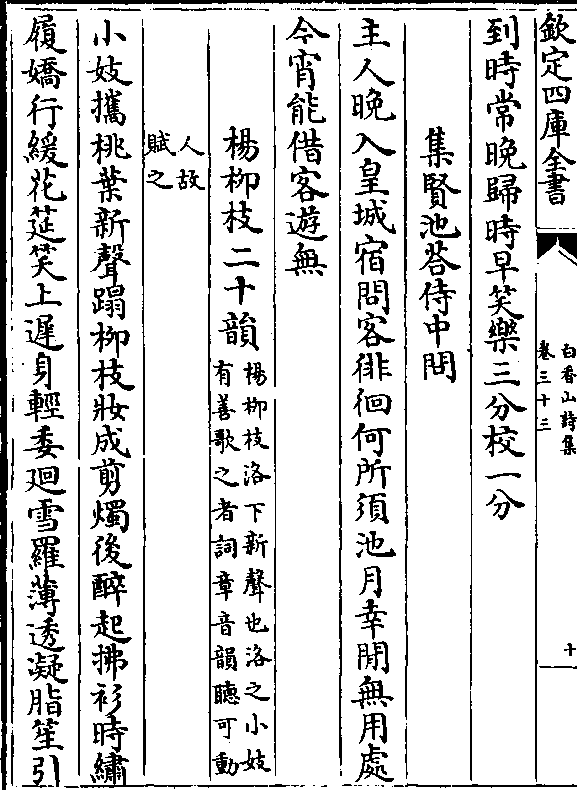 欽定四庫全書
白香山詩集
卷三十三
十
到時常晚歸時早笑樂三分校一分
集賢池荅侍中問
主人晚入皇城宿問客徘徊何所須池月幸閒無用處
今宵能借客遊無
楊柳枝二十韻
楊柳枝洛下新聲也洛之小妓
有善歌之者詞章音韻聽可動
人故
賦之
小妓攜桃葉新聲蹋柳枝妝成剪燭後醉起拂衫時繡
履嬌行緩花筵笑上遲身輕委廻雪羅薄透凝脂笙引